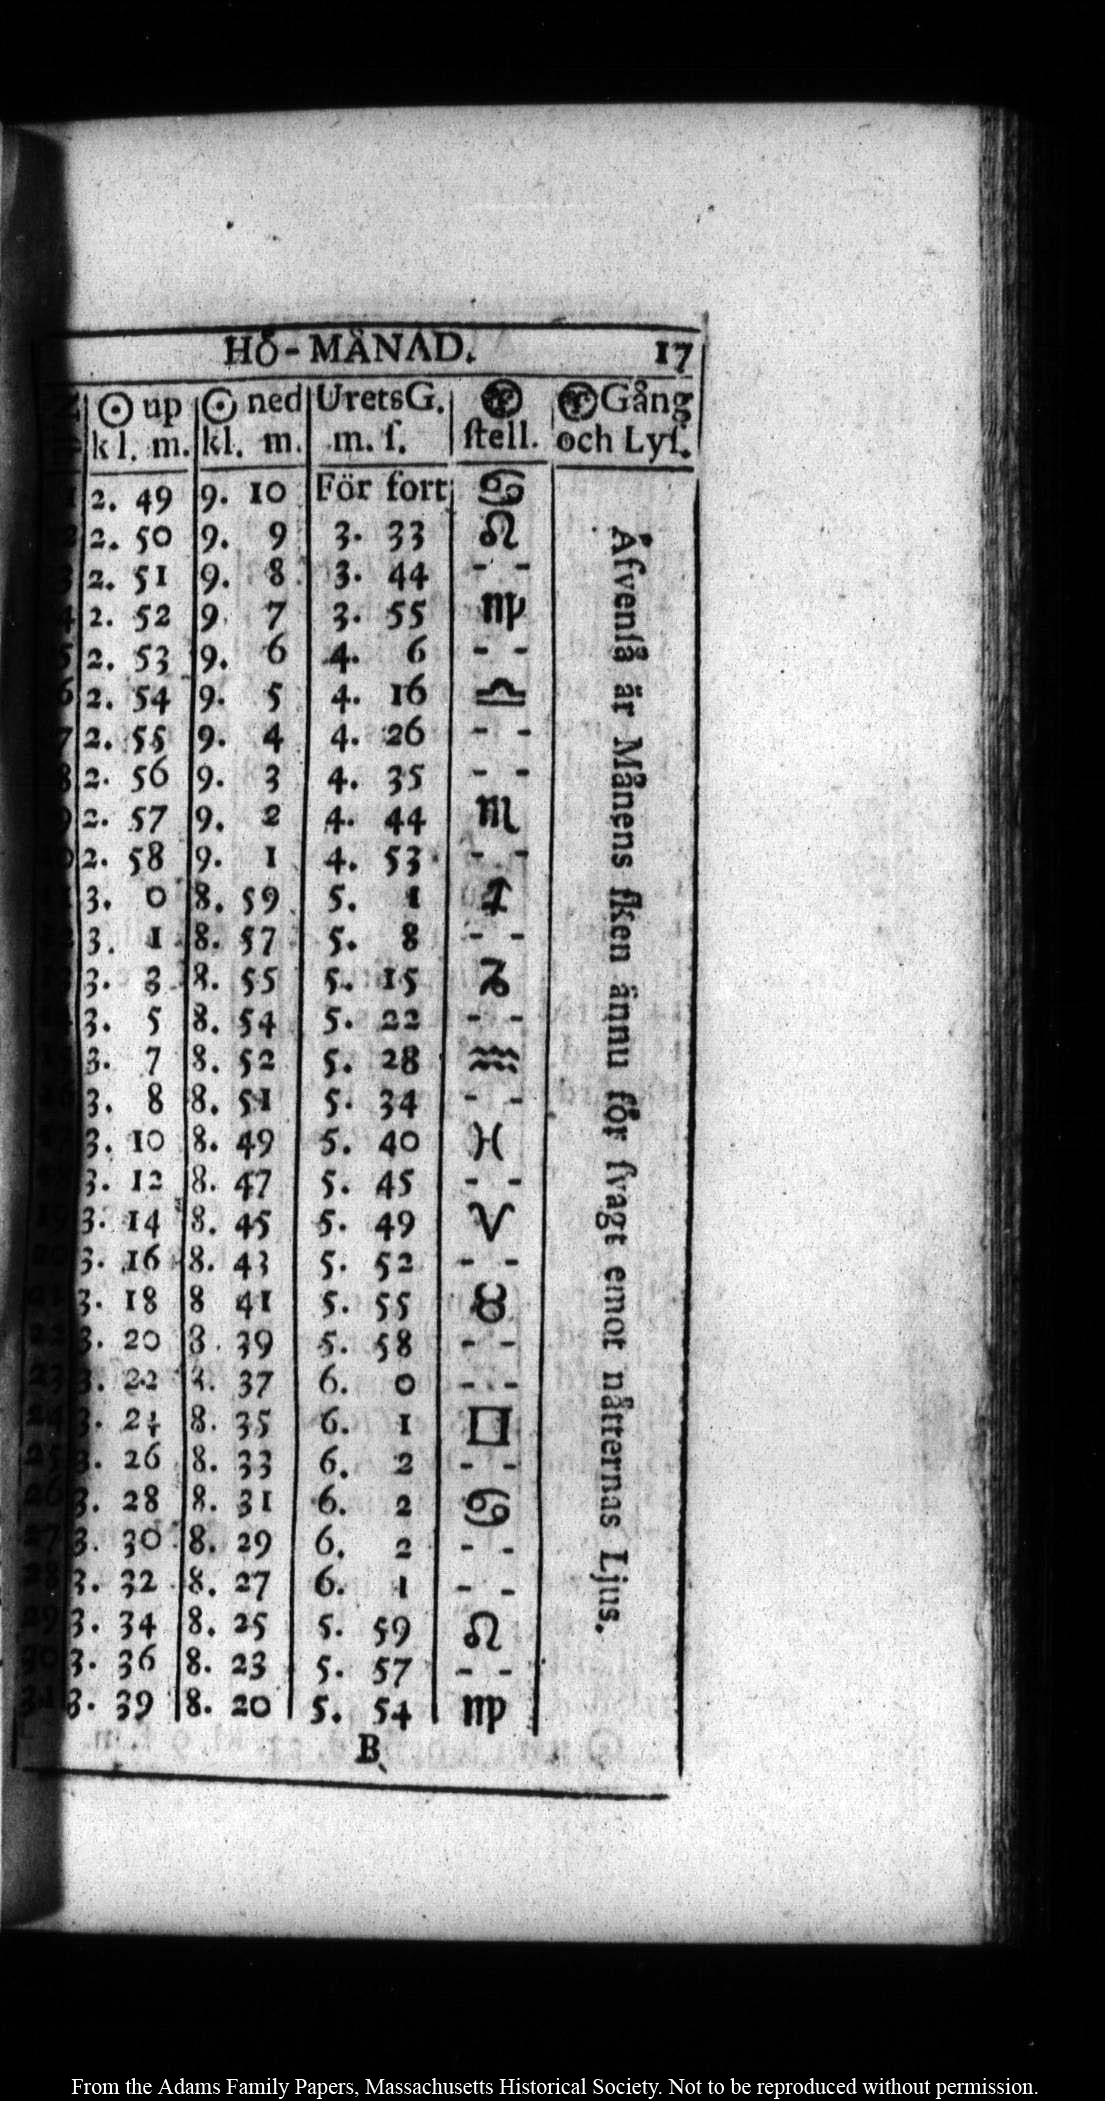 HÖ-MÅNAD. 17
☉ up ☉ ned UretsG. stell. Gång
kl. m. kl. m. m. ſ. och Lyſ.
1 2. 49 9. 10 För fort ♋
2 2. 50 9. 9 3. 33 ♌
3 2. 51 9. 8 3. 44 - -
4 2. 52 9 7 3. 55 ♍
5 2. 53 9. 6 4. 6 - -
6 2. 54 9. 5 4. 16 ♎
7 2. 55 9. 4 4. 26 - -
8 2. 56 9. 3 4. 35 - -
9 2. 57 9. 2 4. 44 ♏
10 2. 58 9. 1 4. 53 - -
11 3. 0 8. 59 5. 1 ♐
12 3. 1 8. 57 5. 8 - -
13 3. 3 8. 55 5. 15 ♑
14 3. 5 8. 54 5. 22 - -
15 3. 7 8. 52 5. 28 ♒
16 3. 8 8. 51 5. 34 - -
17 3. 10 8. 49 5. 40 ♓
18 3. 12 8. 47 5. 45 - -
19 3. 14 8. 45 5. 49 ♈
20 3. 16 8. 43 5. 52 - -
21 3. 18 8 41 5. 55 ♉
22 3. 20 8. 39 5. 58 - -
23 3. 22 8. 37 6. 0 - -
24 3. 24 8. 35 6. 1 ♊
25 3. 26 8. 33 6. 2 - -
26 3. 28 8. 31 6. 2 ♋
27 3. 30 8. 29 6. 2 - -
28 3. 32 8. 27 6. 1 - -
29 3. 34 8. 25 5. 59 ♌
30 3. 36 8. 23 5. 57 - -
31 3. 39 8. 20 5. 54 ♍
Äfvenſå är Månens ſken ännu för ſvagt emot nätternas Ljus.
B
From the Adams Family Papers, Massachusetts Historical Society. Not to be reproduced without permission.